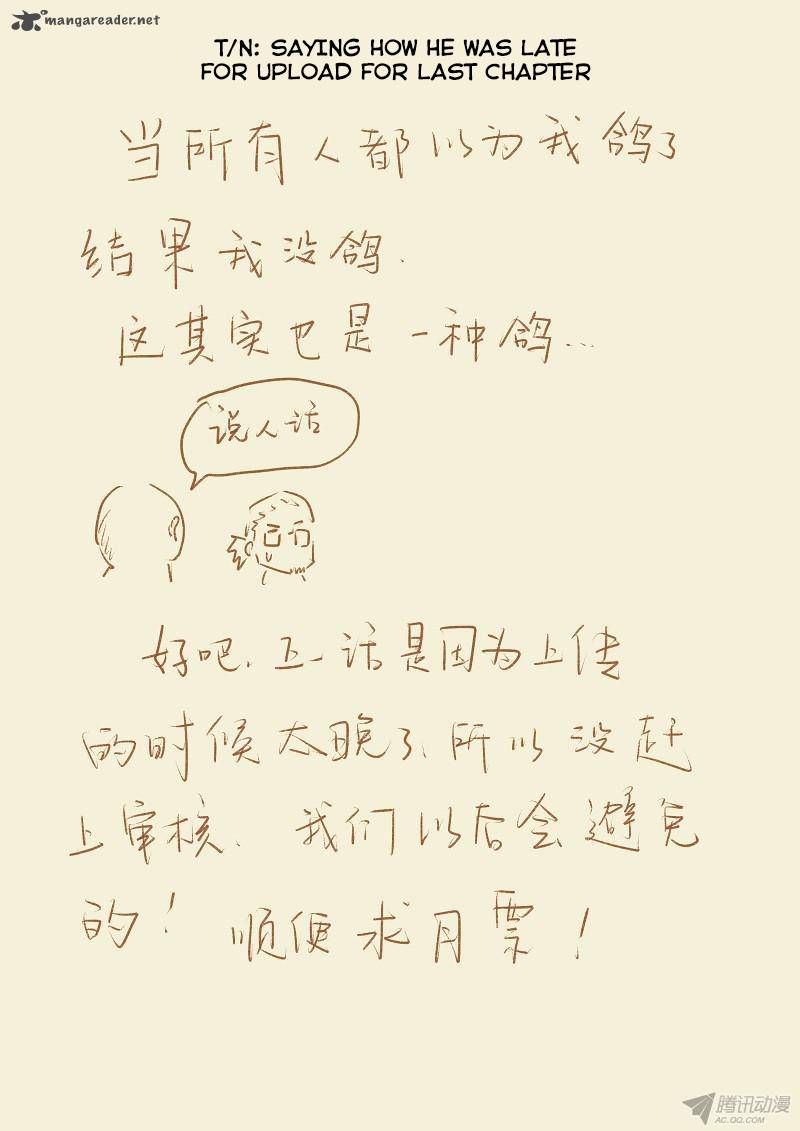 mangareader.net
T/N: SAYING HOW HE WAS LATE
FOR UPLOAD FOR LAST CHAPTER
当所有人都以为我鸽了
结果我没鸽.
这其实也是一种鸽...
说人话
好吧.五一话是因为上传
的时候太晚了、所以没赶
上审核、我们以后会避免
的！顺便求月票！
腾讯动漫
AC.QQ.COM